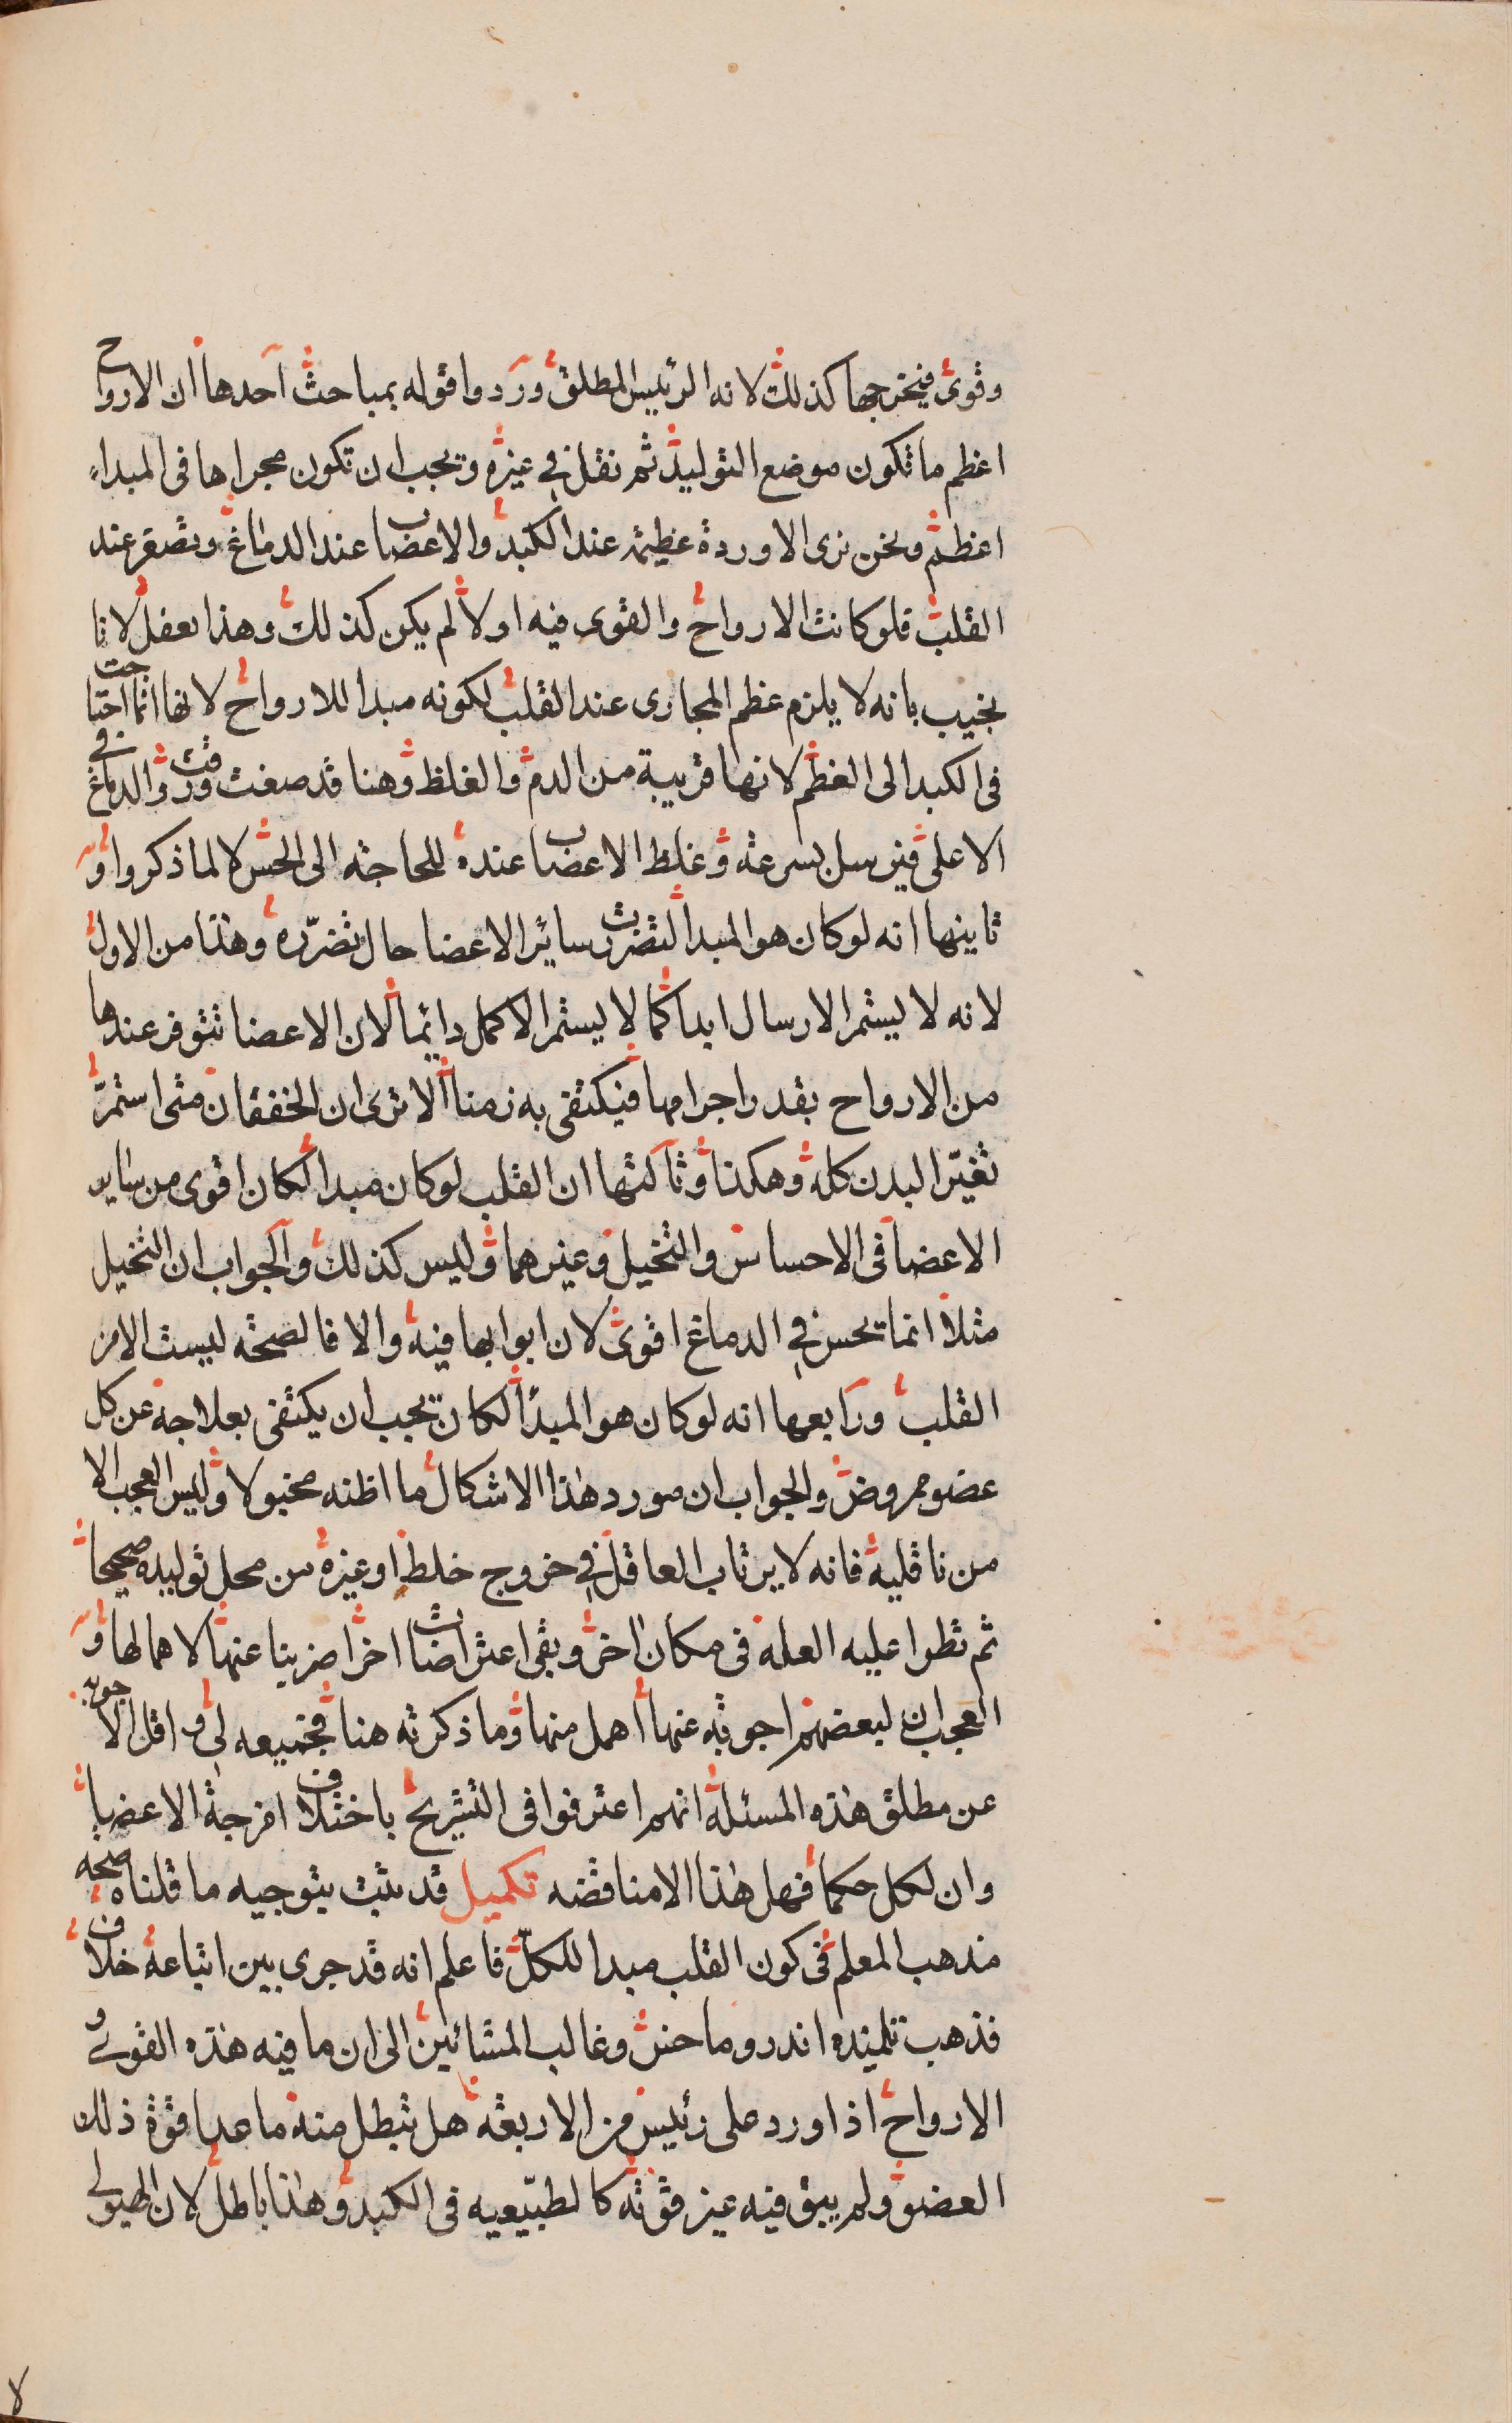 وقوى فيخرجها كذلك لانه الرئيس المطلق وردوا قوله بمباحث احدها ان الارواح
اعظم ما تكون موضع التوليد ثم نقل في غيره ويجب ان تكون مجراها فى المبداء
اعظم ونحن نرى الاوردة عظيمة عند الكبد والاعضاب عند الدماغ وتصغر عند
القلب فلو كانت الارواح والقوى فيه اولا لم يكن كذلك وهذا بعفل لانا
نجيب بانه لا يلزم عظم المجارى عند القلب لكونه مبدا للارواح لانها انما احتاجت
فى الكبد الى العظم لانها قريبة من الدم والغلظ وهنا قد صفت ورقت والدماغ في
الاعلى فيرسل بسرعته وغلظ الاعضاب عنده للحاجته الى الحس لا لما ذكروا و
ثانيها انه لو كان هو المبدا لتضررت سائر الاعضا حال تضرره وهذا من الاول
لانه لا يستمر الارسال ابدا كما لا يستمر الاكل دايما لان الاعضا تتوفر عندها
من الارواح بقدر اجرامها فيكتفى به زمنا الا ترى ان الخفقان متى استمر
تغير البدن كله وهكذا وثالثها ان القلب لو كان مبدا لكان اقوى من ساير
الاعضا فى الاحساس والتخيل وغيرهما وليس كذلك والجواب ان التخيل
مثلا انما يحس في الدماغ اقوى لان ابوابها فيه والا فالصحته ليست الا من
القلب ورابعها انه لو كان هو المبدأ لكان يجب ان يكتفى بعلاجة عن كل
عضو مروض والجواب ان مورد هذا الاشكال ما اظنه مخبولا وليس العجب الا
من ناقليه فانه لا يرتاب العاقل في خروج خلط او غيره من محل توليده صحيحا
ثم تطرا عليه العله فى مكان اخر وبقى اعتراضات اخر اضربنا عنها لاهمالها و
العجب ان لبعضهم اجوبه عنها اهمل منها وما ذكرته هنا فجميعه لى واقل الاجوبه
عن مطلق هذه المسئلة انهم اعترفوا فى التشريح باختلاف امزجة الاعضا
وان لكل حكما فهل هذا الا مناقضه تكميل قد ثبت بتوجيه ما قلناه صحه
مذهب المعلم فى كون القلب مبدا للكل فاعلم انه قد جرى بين اتباعه خلاف
فذهب تلميذه اندروماحنس وغالب المشائين الى ان ما فيه هذه القوى و
الارواح اذا ورد على رئيس من الاربعة هل تبطل منه ما عدا قوة ذلك
العضو ولم يبق فيه غير قوته كالطبيعيه فى الكبد وهذا باطل لان الهيولى
لا